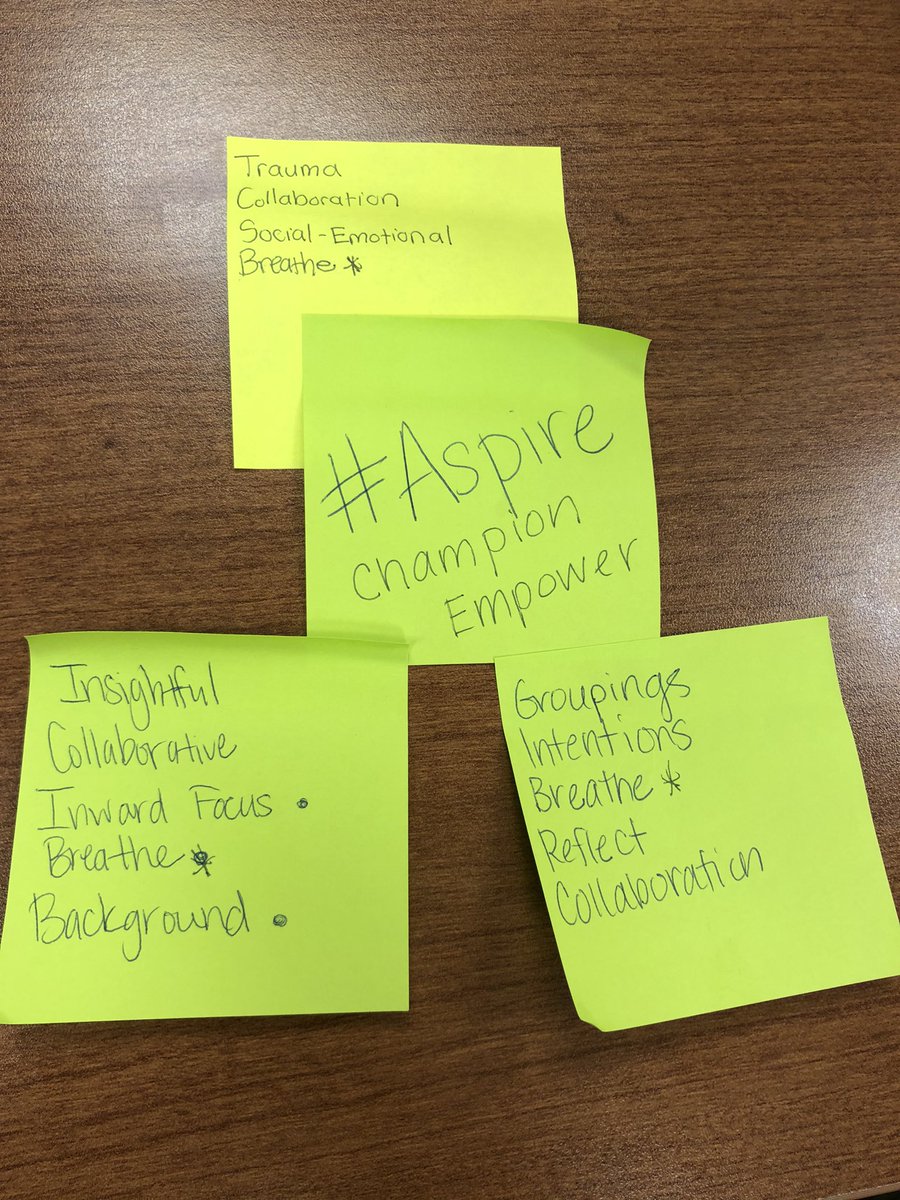 Trauma
Collaboration
Social-Emotional
Breathe *
#Aspire
Champion
Empower
Insightful
Collaborative
Inward Focus •
Breathe *
Background •
Groupings
Intentions
Breathe *
Reflect
Collaboration